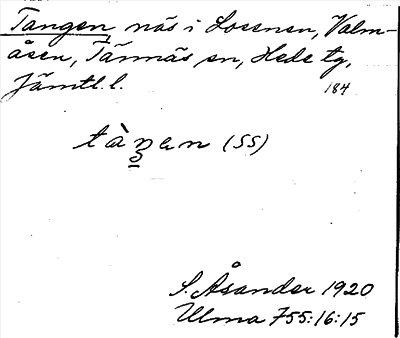 Tangen näs i Lossnen, Valm-
åsen, Tännäs sn, Hede tg,
Jämtl. l.
184
tàŋen (SS)
S. Åsander 1920
Ulma 755:16:15